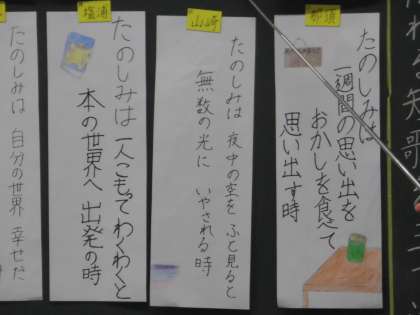 那須
たのしみは
一週間の思い出を
おかしを食べて
思い出す時
山崎
たのしみは 夜中の空を ふと見ると
無数の光に いやされる時
檜浦
たのしみは 一人こもって わくわくと
本の世界へ 出発の時
たのしみは 自分の世界 幸せだ